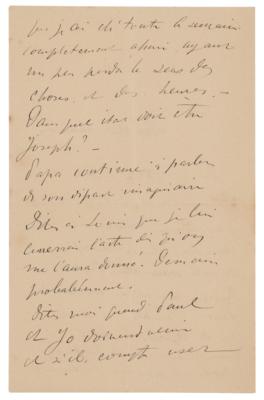 que j'ai été toute la semaine
complètement ahurie, ayant
un peu perdu le sens des
choses et des heures. —
Dans quel état doit être
Joseph? —
Papa continue à parler
de son départ imaginaire
Dites à Louis que je lui
enverrai l'acte dès qu'on
me l'aura donné. Demain
probablement.
Dites moi quand Paul
et Yo doivent venir
et s'ils compte user